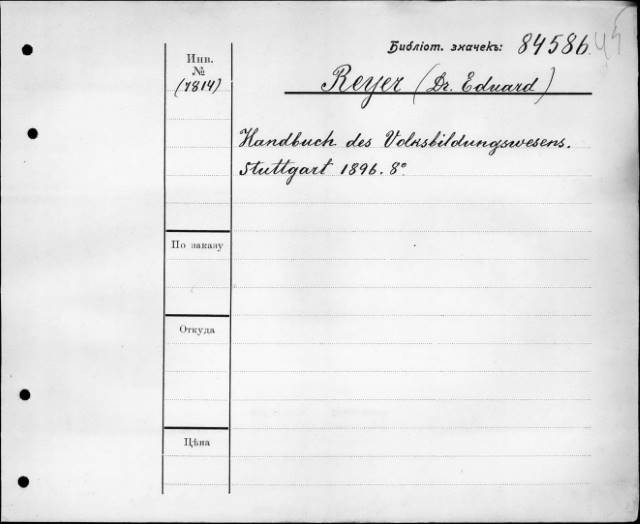 Библіот. значекъ: 84586
Инв.
№
(7814)
Reyer (Dr. Eduard)
Handbuch des Volksbildungswesens.
Stuttgart 1896. 8°
По заказу
Откуда
Цѣна